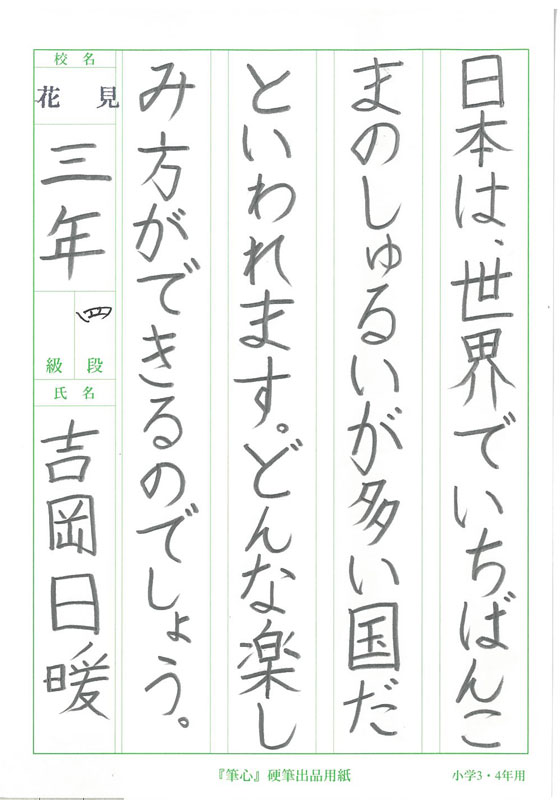 日本は、世界でいちばんこ
まのしゅるいが多い国だ
といわれます。どんな楽し
み方ができるのでしょう。
校名
花見
三年
四
級段
氏名
吉岡日暖
『筆心』硬筆出品用紙
小学3・4年用